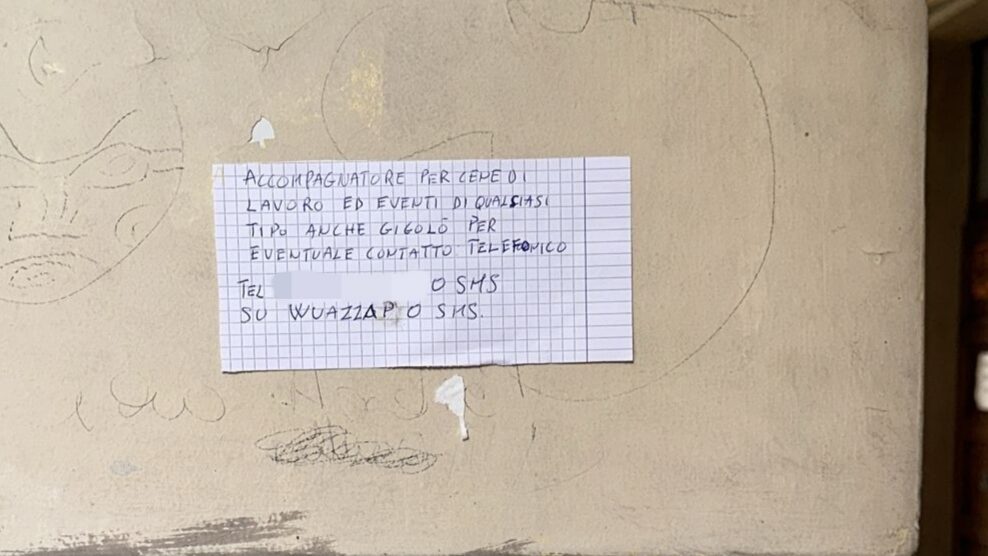 ACCOMPAGNATORE PER CENE DI
LAVORO ED EVENTI DI QUALSIASI
TIPO ANCHE GIGOLÒ PER
EVENTUALE CONTATTO TELEFONICO
TEL O SMS
SU WUAZZAP O SMS.